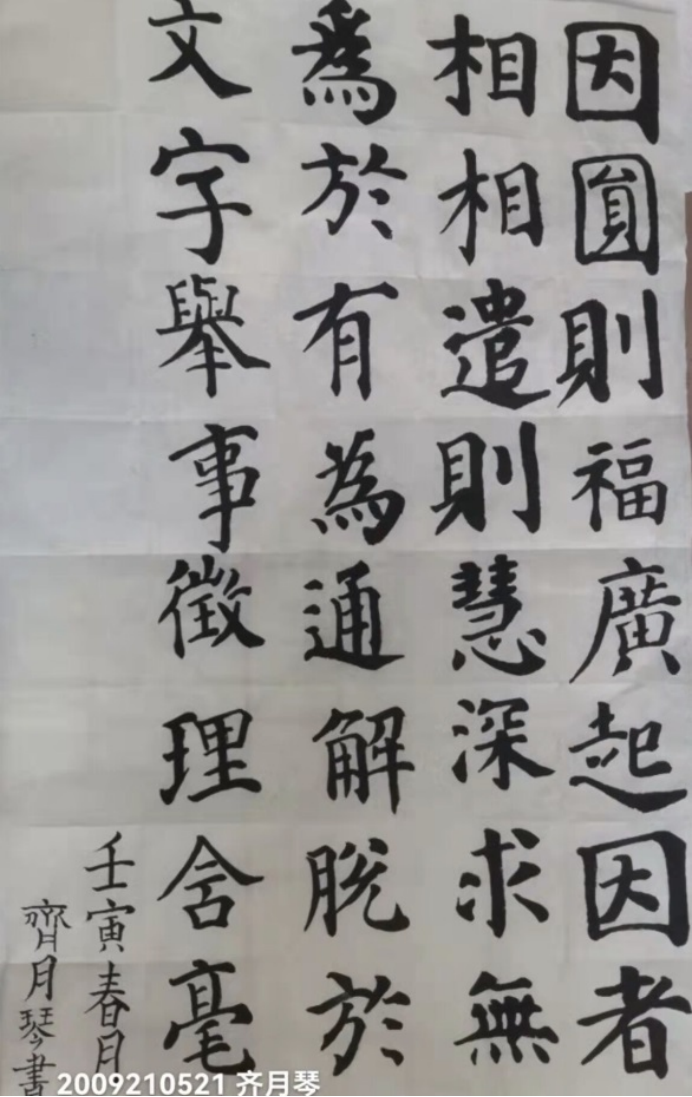 因圓則福廣起因者
相相遣則慧深求無
爲於有為通解脫於
文字舉事徵理含毫
壬寅春月
齊月琴書
2009210521 齐月琴